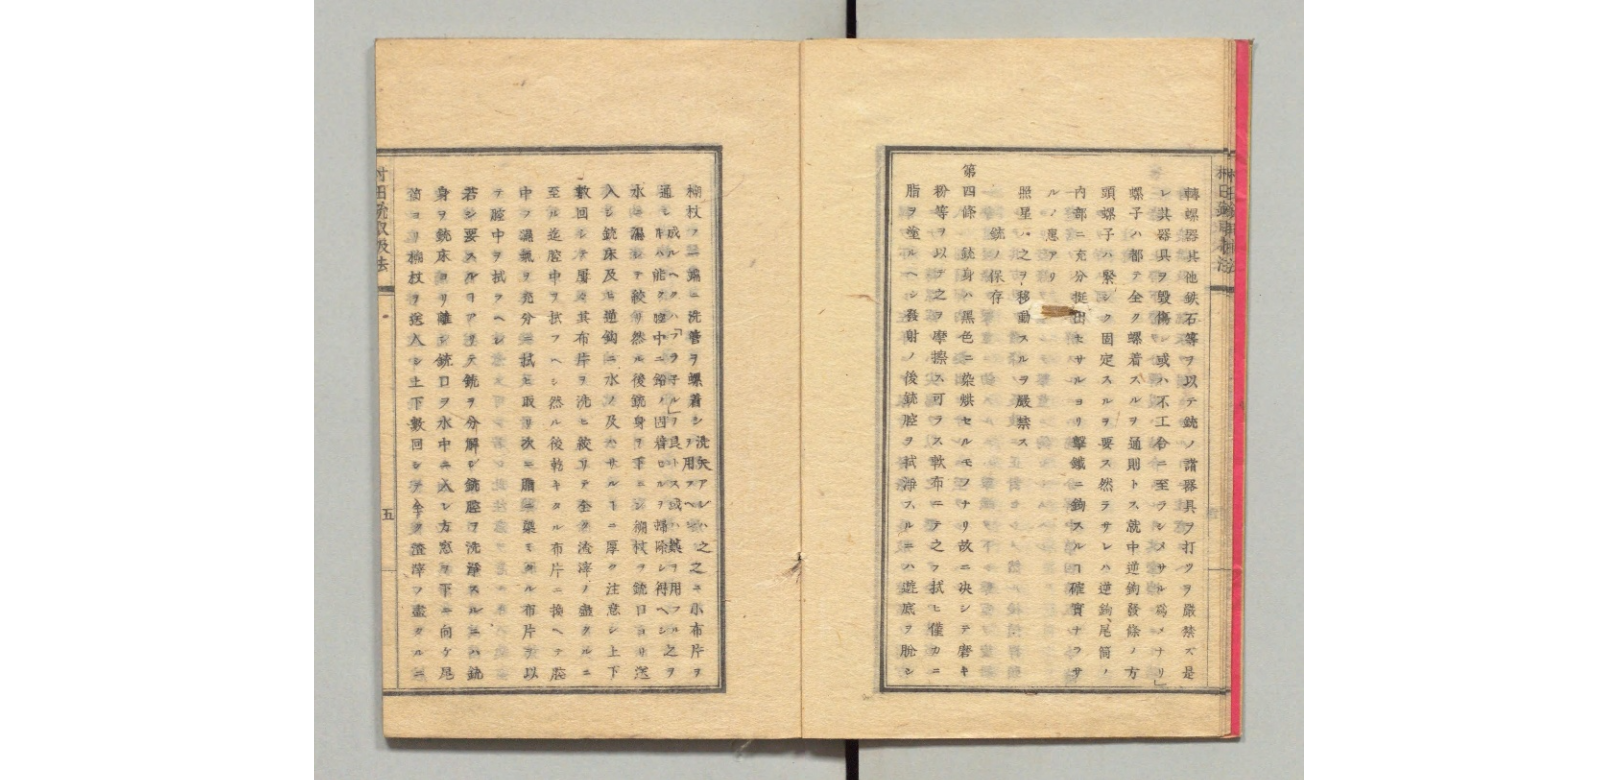 轉螺器其他鉄石等ヲ以テ銃ノ諸器具ヲ打ツヲ嚴禁ズ是
レ其器具ヲ毀傷シ或ハ不工合ニ至ラシメサル爲メナリ」
螺子ハ都テ全ク螺着スルヲ通則トス就中逆鉤發條ノ方
頭螺子ハ緊シク固定スルヲ要ス然ラサレハ逆鉤、尾筒ノ
内部ニ充分挺出セサルヨリ擊鐵ニ鉤スルヿ確實ナラサ
ルノ憑アリ
照星ハ之ヲ移動スルヲ嚴禁ス
銃ノ保存
第四條 銃身ハ黑色ニ染烘セルモヲナリ故ニ决シテ磨キ
粉等ヲ以テ之ヲ摩擦ス可ラス軟布ニテ之ヲ拭ヒ僅カニ
脂ヲ塗ルヘシ發射ノ後銃腔ヲ拭淨スルニハ遊底ヲ脫シ
棚杖ノ一端ニ洗管ヲ螺着シ洗矢アレハ之ヲ用スヘシ之ニ小布片ヲ
通シ成ルヘクハ「フラ子ル」ヲ良トス或ハ用フル之ヲ
水ニ濕シテ絞リ然ル後銃身ヲ下ニシ棚杖ヲ銃口ヨリ送
入シ銃床及ヒ逆鉤ニ水ノ及ハサル樣ニ厚ク注意シ上下
數回シテ屢々其布片ヲ洗ヒ絞リテ全ク渣滓ノ盡クルニ
至ル迄腔中ヲ拭フヘシ然ル後乾キタル布片ニ換ヘテ腔
中ノ濕氣ヲ充分ニ拭ヒ取リ次ニ脂ニ染ミタル布片ヲ以
テ腔中ヲ拭フヘシ
若シ要スルヿアリテ銃ヲ分解シ銃腔ヲ洗淨スルニハ銃
身ヲ銃床ヨリ離シ銃口ヲ水中ニ入レ方窓ヲ下ニ向ケ尾
筒ヨリ棚杖ヲ送入シ上下數回シテ全ク渣滓ノ盡クルニ
村田銃取扱法
五